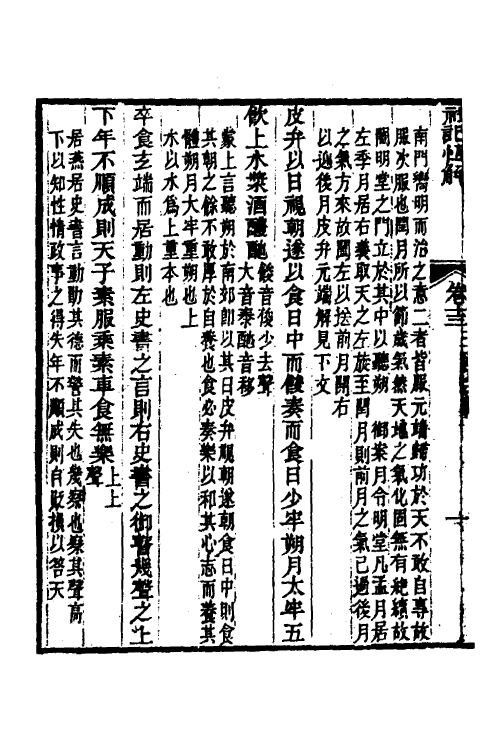 禮記恆解
卷十三
南門嚮明而治之意二者皆服元端歸功於天不敢自專故
服次服也閏月所以節歲氣然天地之氣化固無有絕續故
闔明堂之門立於其中以聽朔 御案月令明堂凡孟月居
左季月居右義取天之左旋至閏月則前月之氣已過後月
之氣方來故闔左以捨前月闢右
以迎後月皮弁元端解見下文
皮弁以日視朝遂以食日中而餕奏而食日少牢朔月太牢五
飲上水漿酒醴酏
餕音俊少去聲
大音泰酏音移
蒙上言聽朔於南郊卽以其日皮弁視朝遂朝食日中則食
其朝之餘不敢厚於自養也食必奏樂以和其心志而養其
體朔月大牢重朔也上
水以水爲上重本也
卒食玄端而居動則左史書之言則右史書之御瞽幾聲之上
下年不順成則天子素服乘素車食無樂
上上
聲
居燕居史書言動勛其德而警其失也幾察也察其聲高
下以知性情政事之得失年不順成則自貶損以答天